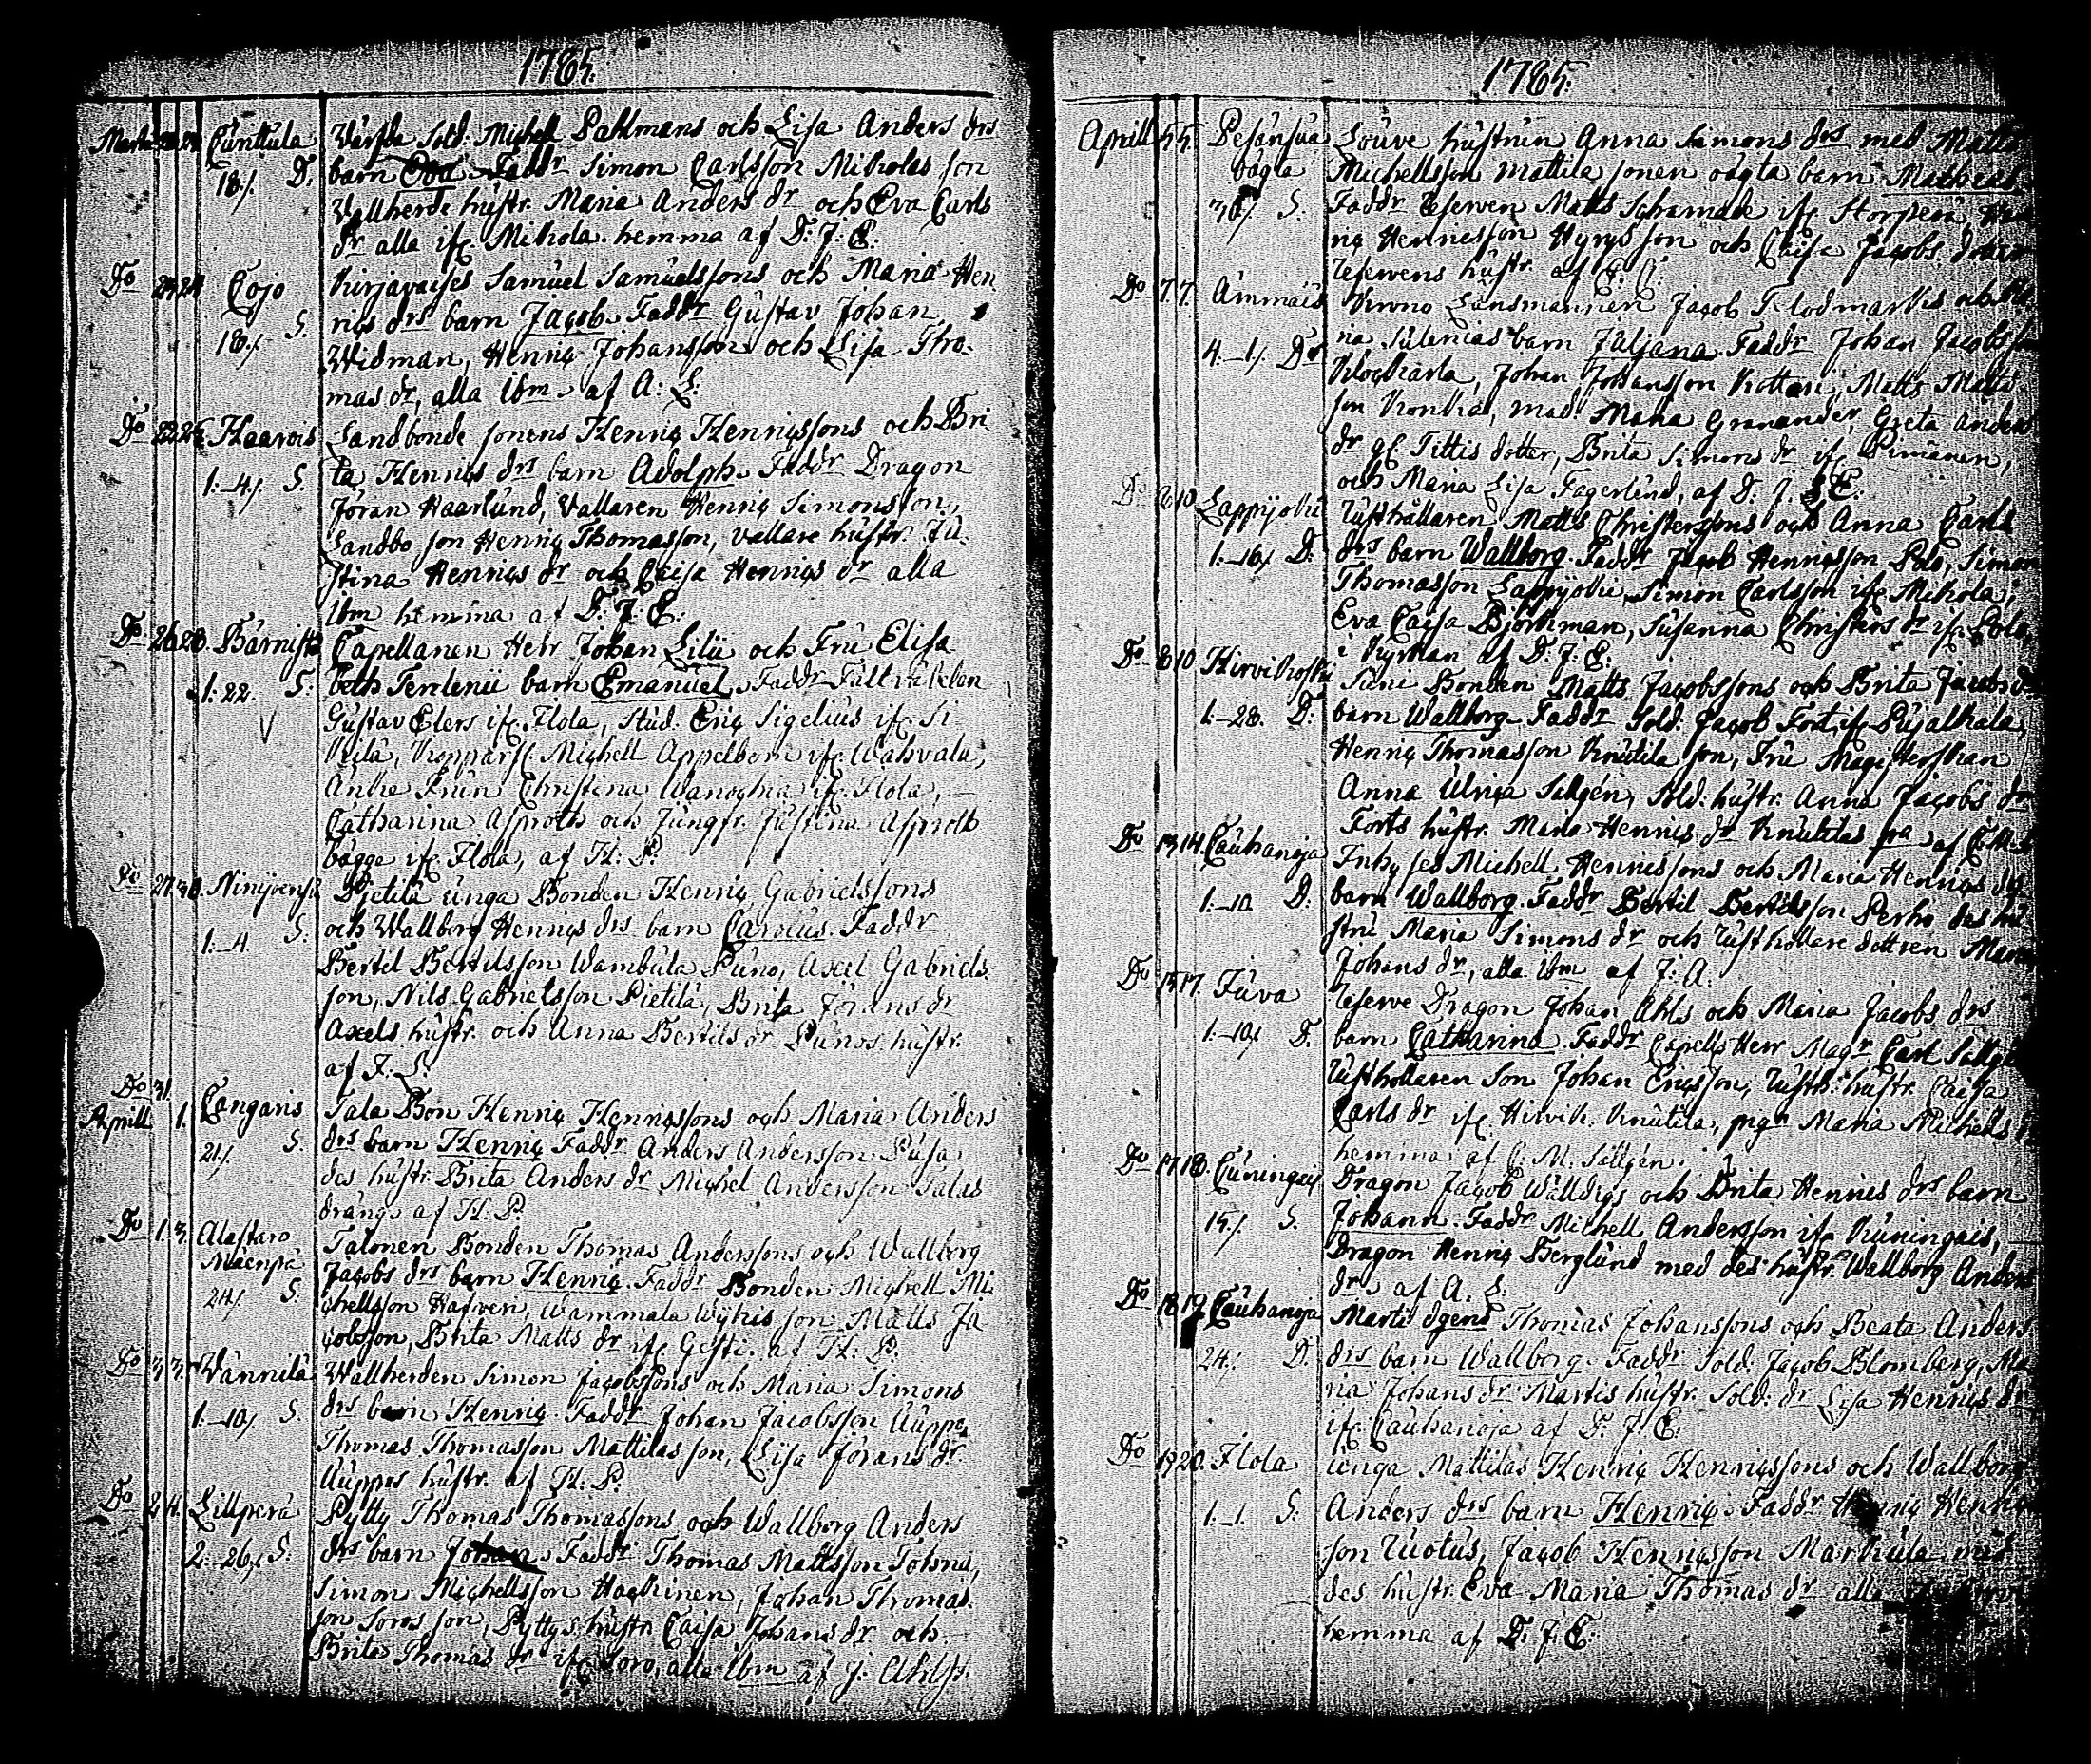 1785.
Punttula Wärfda Sold. Michell Dahlmans och Lisa Anders drs
18/. D. barn Eva. Faddr Simon Carlsson Mikolas son
Wallherde hustr. Maria Anders dr och Eva Carls
dr alla ifr. Mikola. hemma af D. J. E.
Do 23 24 Cojo Kirjavaises Samuel Samuelssons och Maria Hen
18/. S. rics drs barn Jacob. Faddr Gustav Johan
Widman, Henric Johansson och Lisa Tho-
mas dr, alla ibm. af A: L:
Do Haarois Landbonde sonens Henric Henricssons och Bri
1.-4/. S. ta Henrics drs barn Adolph. Faddr Dragon
Jöran Haarlund, Vallaren Henric Simonsson,
Landbo son Henric Thomasson, vallare hustr. Ju-
stina Henrics dr och Caisa Henrics dr alla
ibm hemma af D. J. E:
Do 26 28. Capellanen Herr Johan Lilii och Fru Elisa
1: 22. S: beth Terlenii barn Emanuel. Faddr Fält
Gustav Elers ifr. Flola, Stud. Eric Sigelius ifr. Si
Michell Appelbom ifr. Wahvala,
Änke Frun Christina Wanochia ifr. Flola, —
Catharina Asproth och Jungfr. Justina Asproth
bägge ifr. Flola, af H: P.
Do 27 30. Pjetilä unga Bonden Henric Gabrielssons
1.-4. S. och Wallborg Henrics drs barn Carolus. Faddr
Bertel Bertilsson Wambula Puno, Axel Gabriels
son, Nils Gabrielsson Pietilä, Brita Jörans dr
Axels hustr. och Anna Bertils dr Punos hustr.
af J. S.
Do 31.
Aprill 1. Cangaris Tala Bon Henric Henricssons och Maria Anders
21/. S. drs barn Henric Faddr Anders Andersson Pusa
des hustr. Brita Anders dr Michel Andersson Talas
dräng. af H. P.
Do 1. 3. Alastaro Talonen Bonden Thomas Anderssons och Wallborg
Mäenpä Jacobs drs barn Henric. Faddr Bonden Michell Mi
24/. S. chellsson Hafveri, Wammala Wyhis son Matts Ja
cobsson, Brita Matts dr ifr. Gesti. af H: P.
Do 3 3. Wännilä Wallherden Simon Jacobssons och Maria Simons
1.-10/. S. drs barn Henric. Faddr Johan Jacobsson Uuppo,
Thomas Thomasson Mattilas son, Lisa Jörans dr.
Uuppos hustr. af H. P.
Do 2 4. Lillperä Pytty Thomas Thomassons och Wallborg Anders
2.-26/. S. drs barn Johan. Faddr Thomas Mattsson Tohnu,
Simon Michellsson Hackinen, Johan Thomas
son Soros son, Pyttys hustr. Caisa Johans dr och
Brita Thomas dr ifr. Soro, alla ibm af J. Ahlst.
1785.
Aprill 5 5. Souve hustrun Anna Simons drs med Matts
Michellsson Mattila sonen oägta barn Mathias.
oägta
30/. S. Faddr Reserven Matts ifr. Storperä
Henricsson Hyrys son och Caisa Jacobs
Reservens hustr. af
Do 7 7. Ammais Länsmannen Jacob Flodmarks
4.-1/. Dr barn Juljana. Faddr Johan Jacobsson
Klockarla, Johan Johansson Kottari, Matts Matts
son Konkka, mad. Maria Granander, Greta Anders
dr gl. Tittis dotter, Brita Simons dr ifr.
och Maria Lisa Fagerlund, af D. J. E:
Do 6 10. Lappijoki Rusthållaren Matts Christerssons och Anna Carls
1.-16/. D: drs barn Wallborg. Faddr Jacob Henricsson Polo, Simon
Thomasson Lappijoki, Simon Carlsson ifr. Mikola,
Eva Caisa Björkman, Susanna Christers dr ifr. Polo
i Kyrkan af D. J: E:
Do 8 10. Hirvikoski Suni Bonden Matts Jacobssons och Brita Jacobs dr
1.-28. D: barn Wallborg. Faddr Sold. Jacob Fort ifr. Pujalkala,
Henric Thomasson Knutila son, Fru Magisterskan
Anna Ulrica Salgén, Sold. hustr. Anna Jacobs dr
Forts hustr. Maria Henrics dr Knutilas
Do 13 14. Cauhanoja Inhyses Michell Henricssons och Maria Henrics drs
1.-10. D: barn Wallborg. Faddr Bertil Bertilsson Perho des hu
stru Maria Simons dr och Rusthollare dottren Maria
Johans dr, alla ibm af J: A.
Do 15 17. Juva Reserve Dragon Johan Ahls och Maria Jacobs drs
1.-10/. D. barn Catharina. Faddr Capells Herr Magr Carl Sallgén
Rusthollaren Son Johan Ericsson, Rusth. hustr. Caisa
Carls dr ifr. Hirvik. Knutila, pigan Maria Michells
hemma. af C. M. Sallgén.
Do 17 18. Cuningais Dragon Jacob Walldigs och Brita Henrics drs barn
15/. S. Johann. Faddr Michell Andersson ifr. Kuningais, —
Dragon Henric Berglund med des hustr. Wallborg Anders
dr. af A. L.
Do 18 19. Cauhanoja Martis ägens Thomas Johanssons och Beata Anders
24/. D. drs barn Wallborg. Faddr Sold. Jacob Blomberg, Ma
ria Johans dr Martis hustr. Sold. dr Lisa Henrics dr
ifr. Cauhanoja af D. J. E.
Do 19 20. Flola unga Mattilas Henric Henricssons och Wallborg
1.-1. S: Anders drs barn Henric. Faddr Henric Henrics
son Ruotus, Jacob Henricsson Markula med
des hustr. Eva Maria Thomas dr alla
hemma af D. J. E: